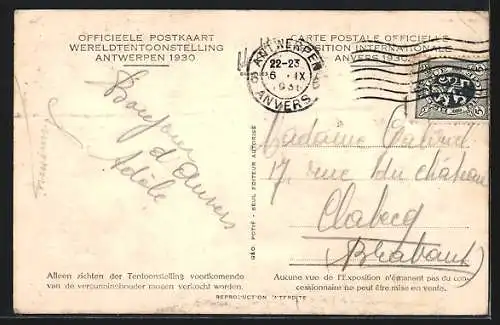 OFFICIEELE POSTKAART
WERELDTENTOONSTELLING
ANTWERPEN 1930
CARTE POSTALE OFFICIELLE
POSITION INTERNATIONALE
ANVERS 1930
ANTWERPEN
22-23
6 IX
ANVERS
Bonjour
d'Anvers
Adèle
Madame
17, rue du château
Clabecq
(Brabant)
GÉO. POTIÉ - SEUL EDITEUR AUTORISÉ
Alleen zichten der Tentoonstelling voortkomende
van de vergunninghouder mogen verkocht worden.
Aucune vue de l'Exposition n'émanent pas du con-
cessionnaire ne peut être mise en vente.
REPRODUCTION INTERDITE